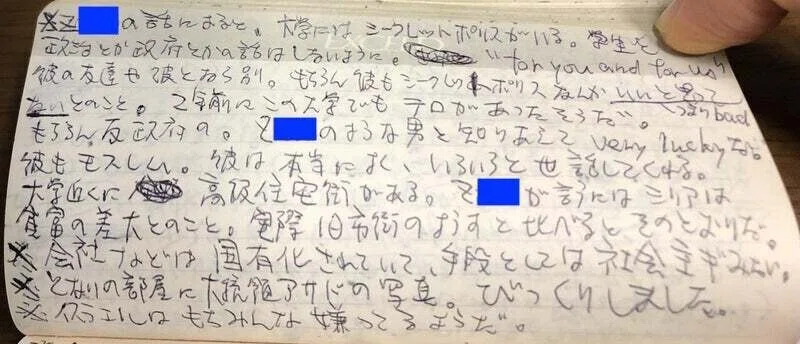 ※Z の話によると、大学にはシークレットポリスがいる。学生も
政治とか政府とかの話はしないように。 "for you and for us"
彼の友達も彼となら別。もちろん彼もシークレットポリスなんかいいと思って
ないとのこと。2年前にこの大学でもテロがあったそうだ。 つまりbad
もちろん反政府の。Z のような男と知りあえてvery luckyだ。
彼もモスリム。彼は本当によく、いろいろと世話してくれる。
大学近くに 高級住宅街がある。Z が言うにはシリアは
貧富の差大とのこと。実際旧市街のようすと比べるとそのとおりだ。
※会社などは国有化されていて、手段としては社会主ぎみたい。
※となりの部屋に大統領アサドの写真。びっくりしました。
※イスラエルはもちみんな嫌ってるようだ。